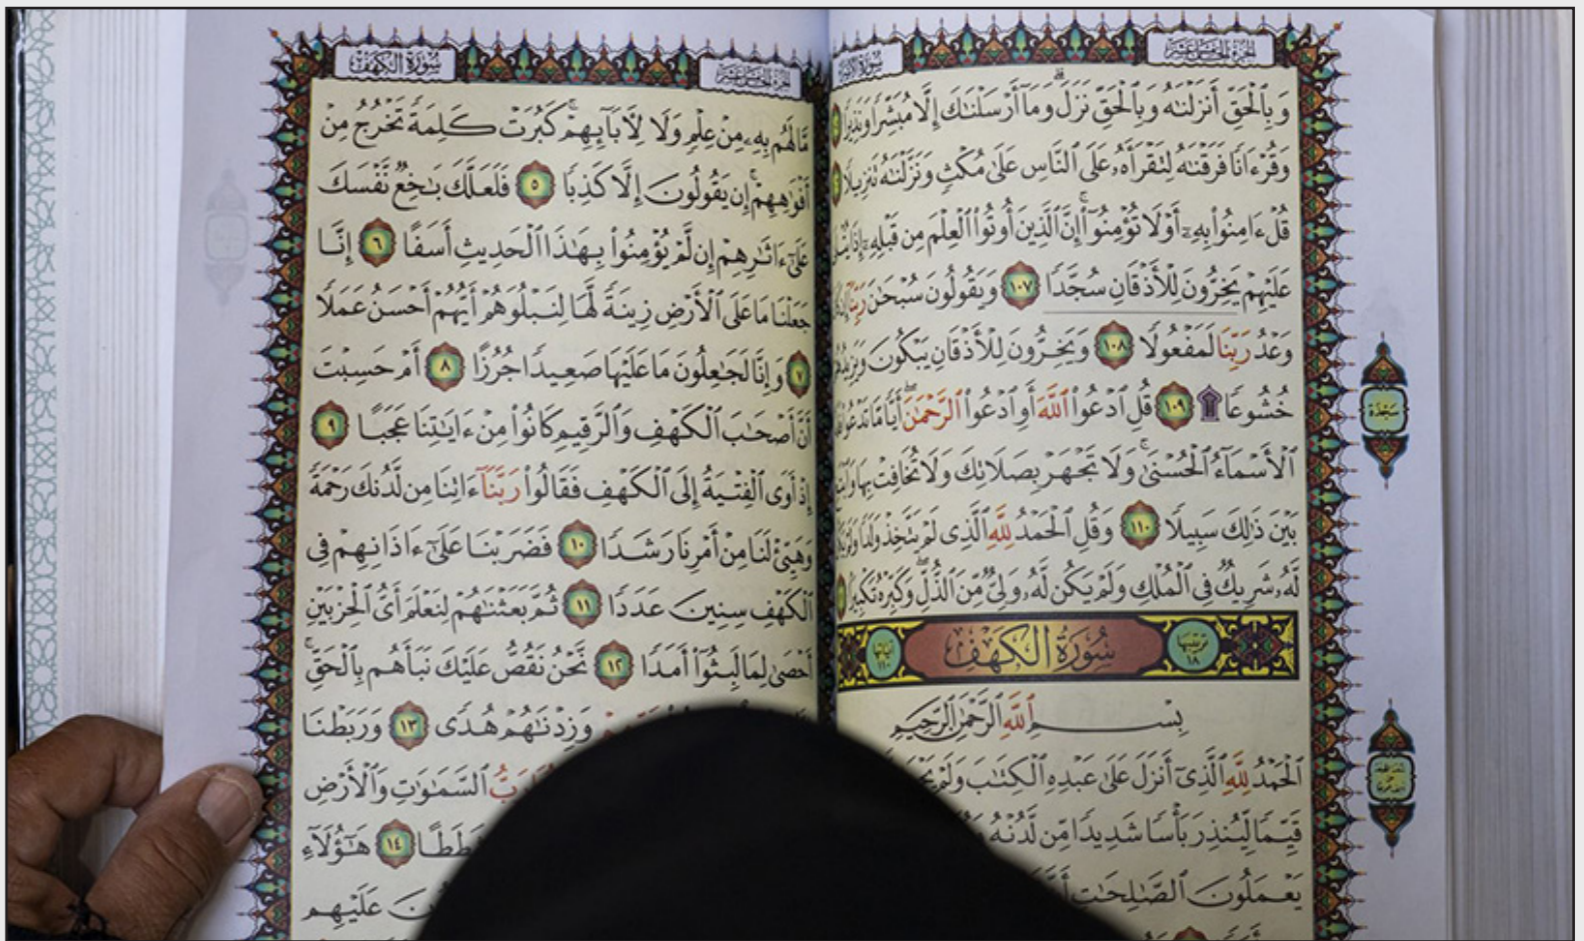 الجزء الخامس عشر
سورة
وَبِالْحَقِّ أَنزَلْنَٰهُ وَبِالْحَقِّ نَزَلَ ۗ وَمَآ أَرْسَلْنَٰكَ إِلَّا مُبَشِّرًا وَنَذِيرًا
وَقُرْءَانًا فَرَقْنَٰهُ لِتَقْرَأَهُۥ عَلَى ٱلنَّاسِ عَلَىٰ مُكْثٍ وَنَزَّلْنَٰهُ تَنزِيلًا
قُلْ ءَامِنُوا۟ بِهِۦٓ أَوْ لَا تُؤْمِنُوٓا۟ ۚ إِنَّ ٱلَّذِينَ أُوتُوا۟ ٱلْعِلْمَ مِن قَبْلِهِۦٓ إِذَا يُتْلَىٰ
عَلَيْهِمْ يَخِرُّونَ لِلْأَذْقَانِ سُجَّدًا ١٠٧ وَيَقُولُونَ سُبْحَٰنَ رَبِّنَآ إِن
وَعْدُ رَبِّنَا لَمَفْعُولًا ١٠٨ وَيَخِرُّونَ لِلْأَذْقَانِ يَبْكُونَ وَيَزِيدُهُمْ
خُشُوعًا ۩ ١٠٩ قُلِ ٱدْعُوا۟ ٱللَّهَ أَوِ ٱدْعُوا۟ ٱلرَّحْمَٰنَ ۖ أَيًّا مَّا تَدْعُوا۟
سجدة
ٱلْأَسْمَآءُ ٱلْحُسْنَىٰ ۚ وَلَا تَجْهَرْ بِصَلَاتِكَ وَلَا تُخَافِتْ بِهَا وَٱبْتَغِ
بَيْنَ ذَٰلِكَ سَبِيلًا ١١٠ وَقُلِ ٱلْحَمْدُ لِلَّهِ ٱلَّذِى لَمْ يَتَّخِذْ وَلَدًا وَلَمْ يَكُن
لَّهُۥ شَرِيكٌ فِى ٱلْمُلْكِ وَلَمْ يَكُن لَّهُۥ وَلِىٌّ مِّنَ ٱلذُّلِّ ۖ وَكَبِّرْهُ تَكْبِيرًۢا
ترتيبها ١٨ سورة الكهف آياتها ١١٠
بِسْمِ ٱللَّهِ ٱلرَّحْمَٰنِ ٱلرَّحِيمِ
ٱلْحَمْدُ لِلَّهِ ٱلَّذِىٓ أَنزَلَ عَلَىٰ عَبْدِهِ ٱلْكِتَٰبَ وَلَمْ
قَيِّمًا لِّيُنذِرَ بَأْسًا شَدِيدًا مِّن لَّدُنْهُ
يَعْمَلُونَ ٱلصَّٰلِحَٰتِ
الجزء الخامس عشر
سورة الكهف
مَّا لَهُم بِهِۦ مِنْ عِلْمٍ وَلَا لِءَابَآئِهِمْ ۚ كَبُرَتْ كَلِمَةً تَخْرُجُ مِنْ
أَفْوَٰهِهِمْ ۚ إِن يَقُولُونَ إِلَّا كَذِبًا ٥ فَلَعَلَّكَ بَٰخِعٌ نَّفْسَكَ
عَلَىٰٓ ءَاثَٰرِهِمْ إِن لَّمْ يُؤْمِنُوا۟ بِهَٰذَا ٱلْحَدِيثِ أَسَفًا ٦ إِنَّا
جَعَلْنَا مَا عَلَى ٱلْأَرْضِ زِينَةً لَّهَا لِنَبْلُوَهُمْ أَيُّهُمْ أَحْسَنُ عَمَلًا
٧ وَإِنَّا لَجَٰعِلُونَ مَا عَلَيْهَا صَعِيدًا جُرُزًا ٨ أَمْ حَسِبْتَ
أَنَّ أَصْحَٰبَ ٱلْكَهْفِ وَٱلرَّقِيمِ كَانُوا۟ مِنْ ءَايَٰتِنَا عَجَبًا ٩
إِذْ أَوَى ٱلْفِتْيَةُ إِلَى ٱلْكَهْفِ فَقَالُوا۟ رَبَّنَآ ءَاتِنَا مِن لَّدُنكَ رَحْمَةً
وَهَيِّئْ لَنَا مِنْ أَمْرِنَا رَشَدًا ١٠ فَضَرَبْنَا عَلَىٰٓ ءَاذَانِهِمْ فِى
ٱلْكَهْفِ سِنِينَ عَدَدًا ١١ ثُمَّ بَعَثْنَٰهُمْ لِنَعْلَمَ أَىُّ ٱلْحِزْبَيْنِ
أَحْصَىٰ لِمَا لَبِثُوٓا۟ أَمَدًا ١٢ نَّحْنُ نَقُصُّ عَلَيْكَ نَبَأَهُم بِٱلْحَقِّ ۚ
وَزِدْنَٰهُمْ هُدًى ١٣ وَرَبَطْنَا
رَبُّ ٱلسَّمَٰوَٰتِ وَٱلْأَرْضِ
شَطَطًا ١٤ هَٰٓؤُلَآءِ
عَلَيْهِم